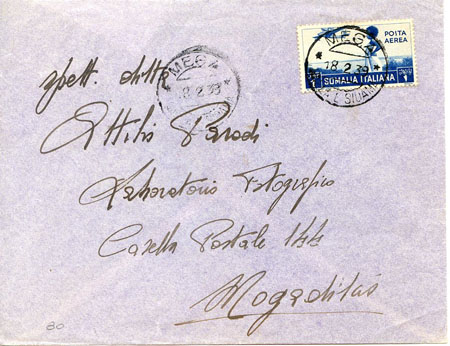 MEGA
18.2.39
POSTA
AEREA
1
SOMALIA ITALIANA
1
MEGA
18.2.39
Spett. ditta
Attilio Parodi
Laboratorio Fotografico
Casella Postale 144
Mogadiscio
80